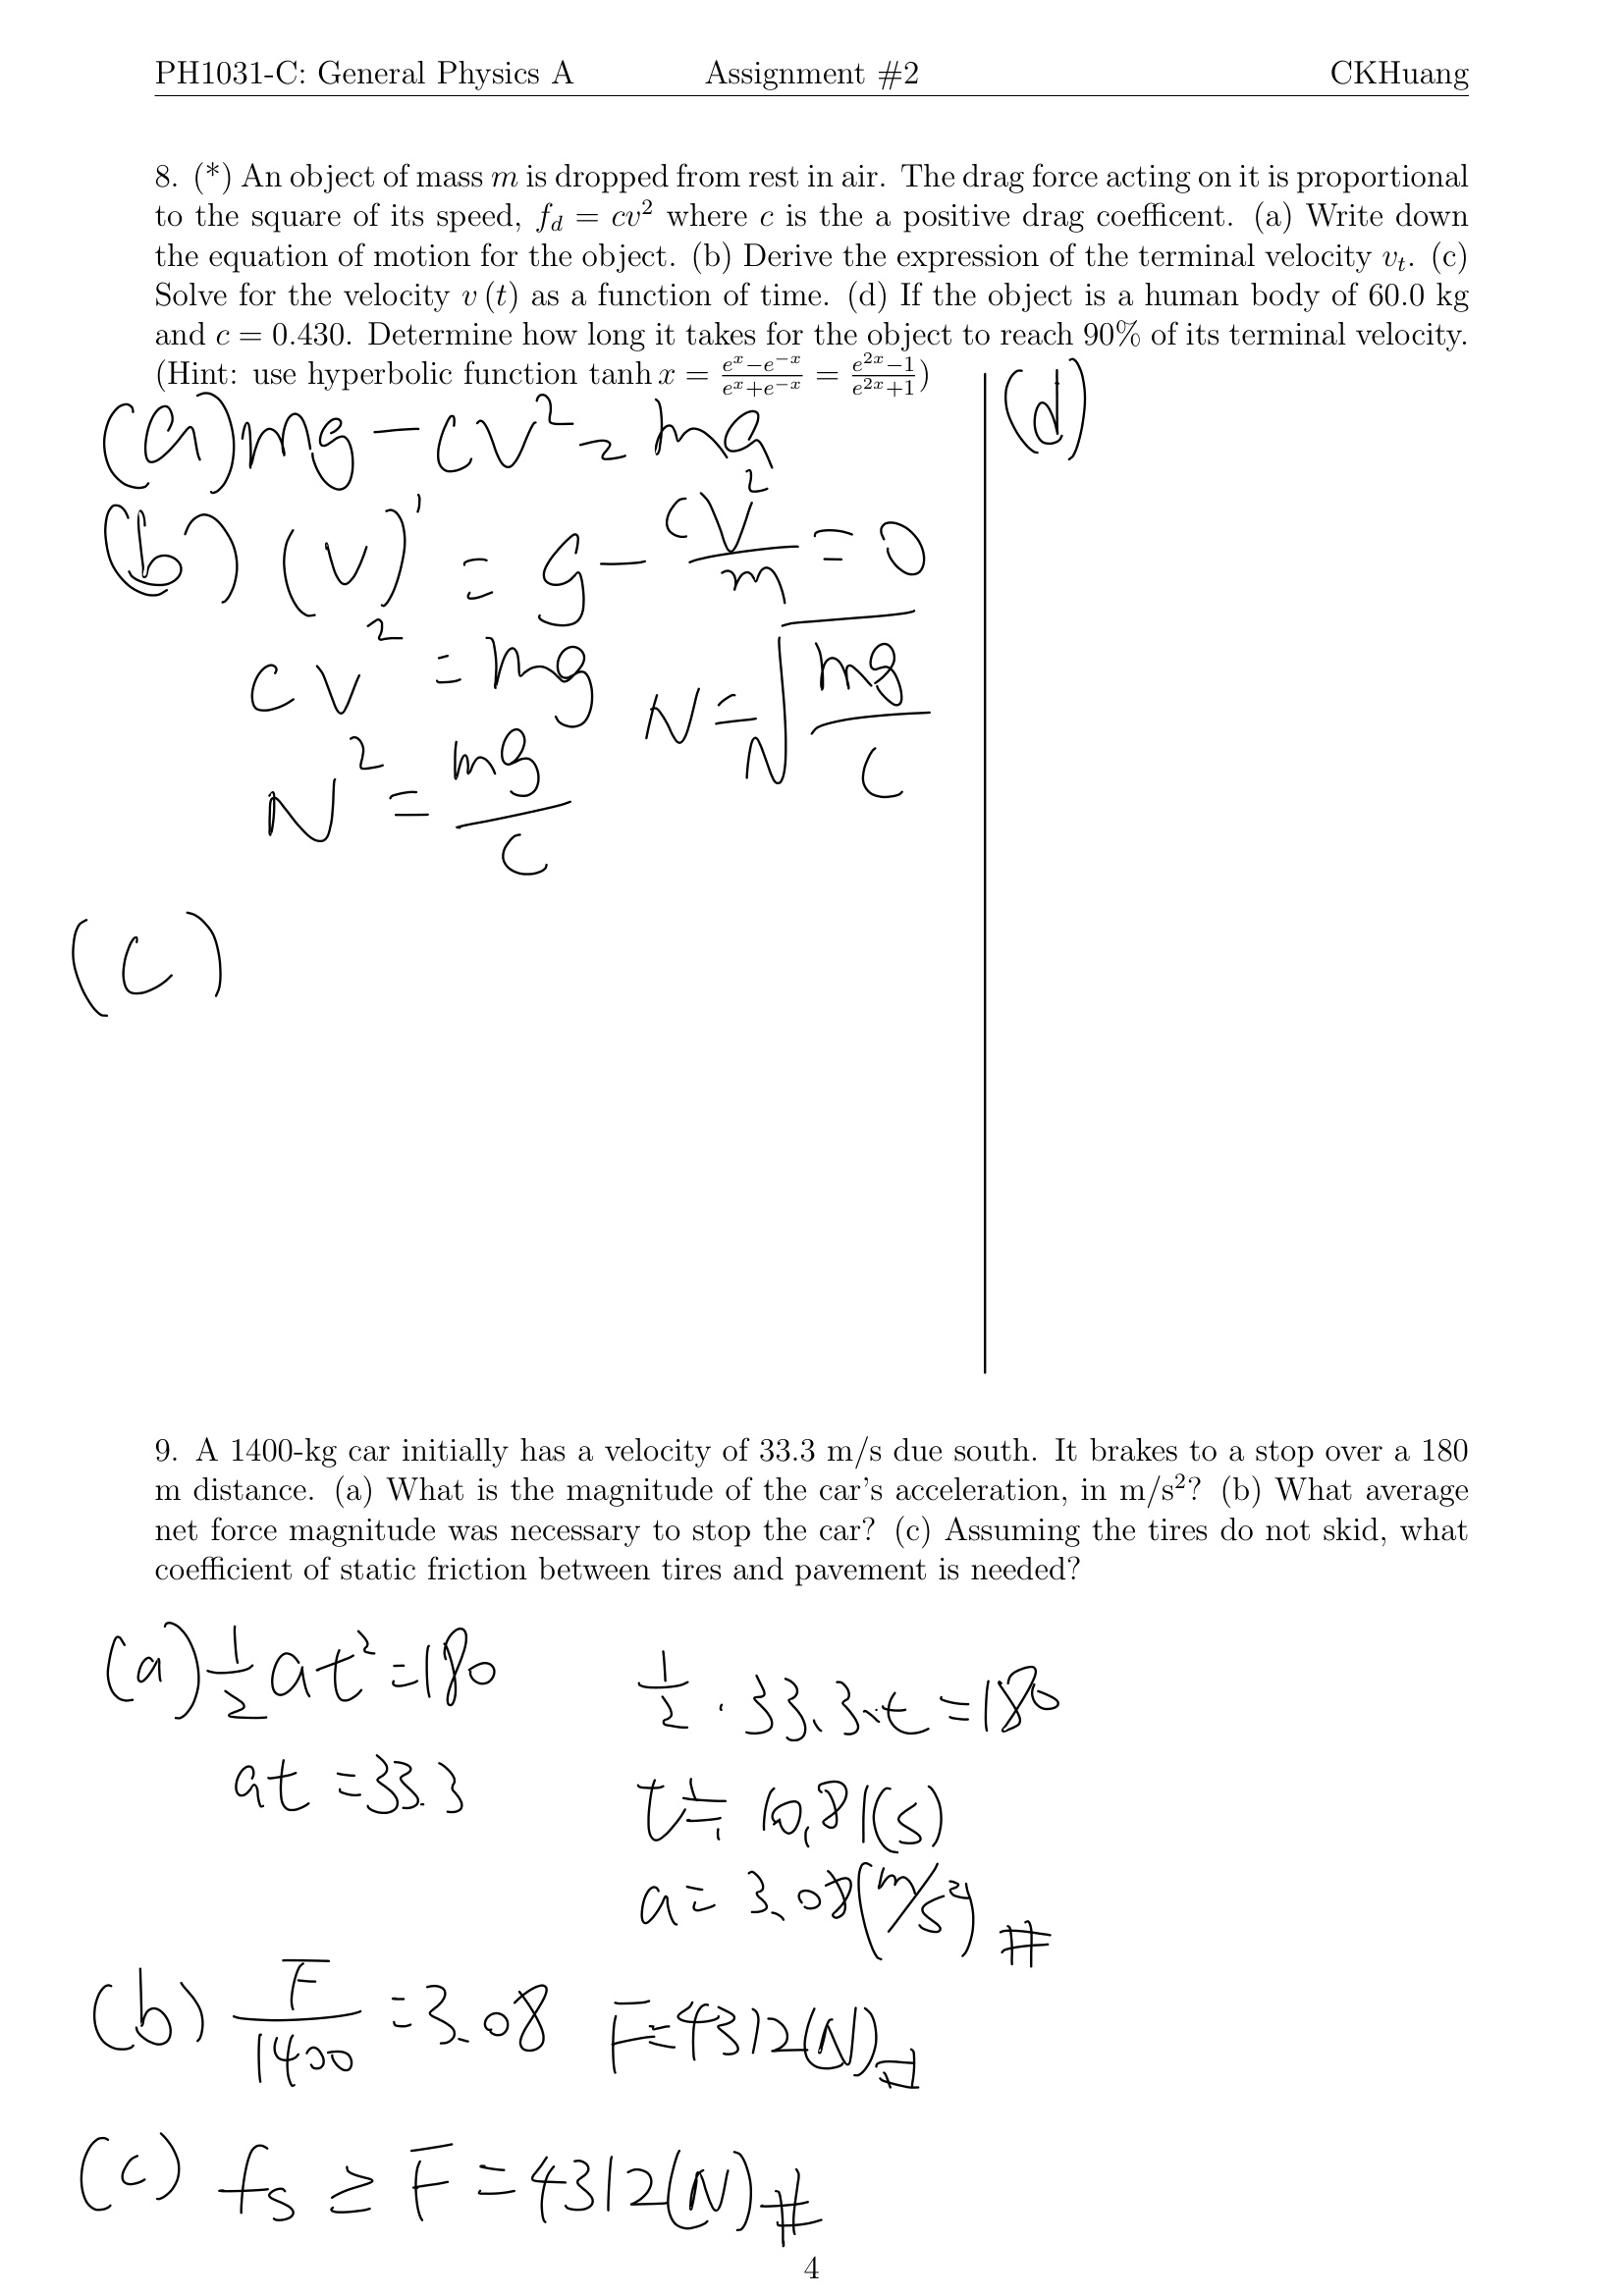 PH1031-C: General Physics A Assignment #2 CKHuang
8. (*) An object of mass m is dropped from rest in air. The drag force acting on it is proportional
to the square of its speed, f_d = cv² where c is the a positive drag coefficent. (a) Write down
the equation of motion for the object. (b) Derive the expression of the terminal velocity v_t. (c)
Solve for the velocity v (t) as a function of time. (d) If the object is a human body of 60.0 kg
and c = 0.430. Determine how long it takes for the object to reach 90% of its terminal velocity.
(Hint: use hyperbolic function tanh x = (e^x−e^{−x})/(e^x+e^{−x}) = (e^{2x}−1)/(e^{2x}+1))
(a) mg − cv² = ma
(b) (v)' = g − cv²/m = 0
cv² = mg
v² = mg/c
v = √(mg/c)
(c)
(d)
9. A 1400-kg car initially has a velocity of 33.3 m/s due south. It brakes to a stop over a 180
m distance. (a) What is the magnitude of the car's acceleration, in m/s²? (b) What average
net force magnitude was necessary to stop the car? (c) Assuming the tires do not skid, what
coefficient of static friction between tires and pavement is needed?
(a) 1/2 at² = 180
at = 33.3
1/2 · 33.3 · t = 180
t ≒ 10.81(s)
a = 3.08(m/s²) #
(b) F/1400 = 3.08 F = 4312(N) #
(c) fs ≥ F = 4312(N) #
4